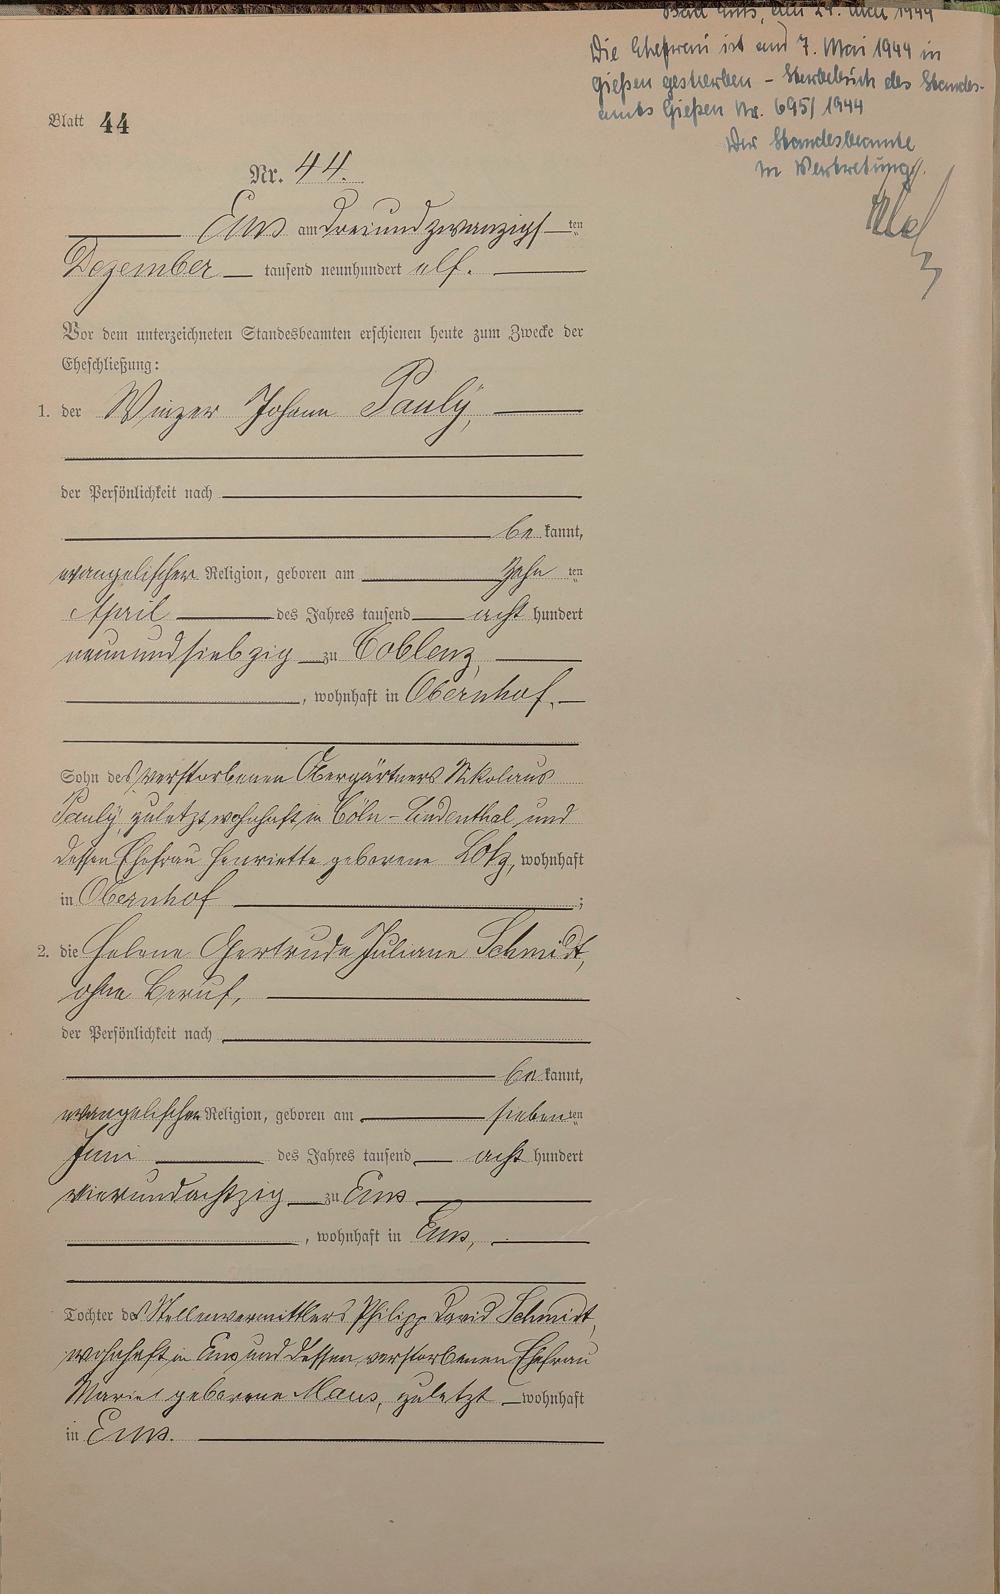 Bad Ems, den 24. Mai 1944
Die Ehefrau ist am 7. Mai 1944 in
Gießen gestorben – Sterbebuch des Standes-
amts Gießen Nr. 695/1944
Der Standesbeamte
In Vertretung
Blatt 44
Nr. 44.
Ems am dreiundzwanzigsten
Dezember tausend neunhundert elf.
Vor dem unterzeichneten Standesbeamten erschienen heute zum Zwecke der
Eheschließung:
1. der Winzer Johann Pauly,
der Persönlichkeit nach
bekannt,
evangelischer Religion, geboren am zehnten
April des Jahres tausend acht hundert
neunundsiebzig zu Coblenz,
, wohnhaft in Obernhof.
Sohn des verstorbenen Obergärtners Nikolaus
Pauly, zuletzt wohnhaft in Cöln-Lindenthal und
dessen Ehefrau Henriette geborene Lotz, wohnhaft
in Obernhof ;
2. die Helene Gertrude Juliane Schmidt,
ohne Beruf,
der Persönlichkeit nach
bekannt,
evangelischer Religion, geboren am siebenten
Juni des Jahres tausend acht hundert
vierundachtzig zu Ems
, wohnhaft in Ems,
Tochter des Stellenvermittlers Philipp David Schmidt,
wohnhaft in Ems und dessen verstorbenen Ehefrau
Marie geborene Maus, zuletzt wohnhaft
in Ems.